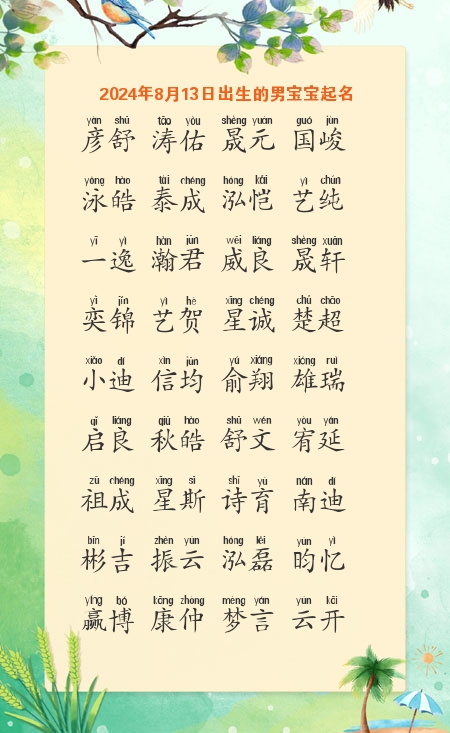 2024年8月13日出生的男宝宝起名
yàn shū tāo yòu shèng yuán guó jùn
彦舒 涛佑 晟元 国峻
yǒng hào tài chéng hóng kǎi yì chún
泳皓 泰成 泓恺 艺纯
yī yì hàn jūn wēi liáng shèng xuān
一逸 瀚君 威良 晟轩
yì jǐn yì hè xīng chéng chǔ chāo
奕锦 艺贺 星诚 楚超
xiǎo dí xìn jūn yú xiáng xióng ruì
小迪 信均 俞翔 雄瑞
qǐ liáng qiū hào shū wén yòu yán
启良 秋皓 舒文 宥延
zǔ chéng xīng sī shī yù nán dí
祖成 星斯 诗育 南迪
bīn jí zhèn yún hóng lěi yún yì
彬吉 振云 泓磊 昀忆
yíng bó kāng zhòng mèng yán yún kāi
赢博 康仲 梦言 云开